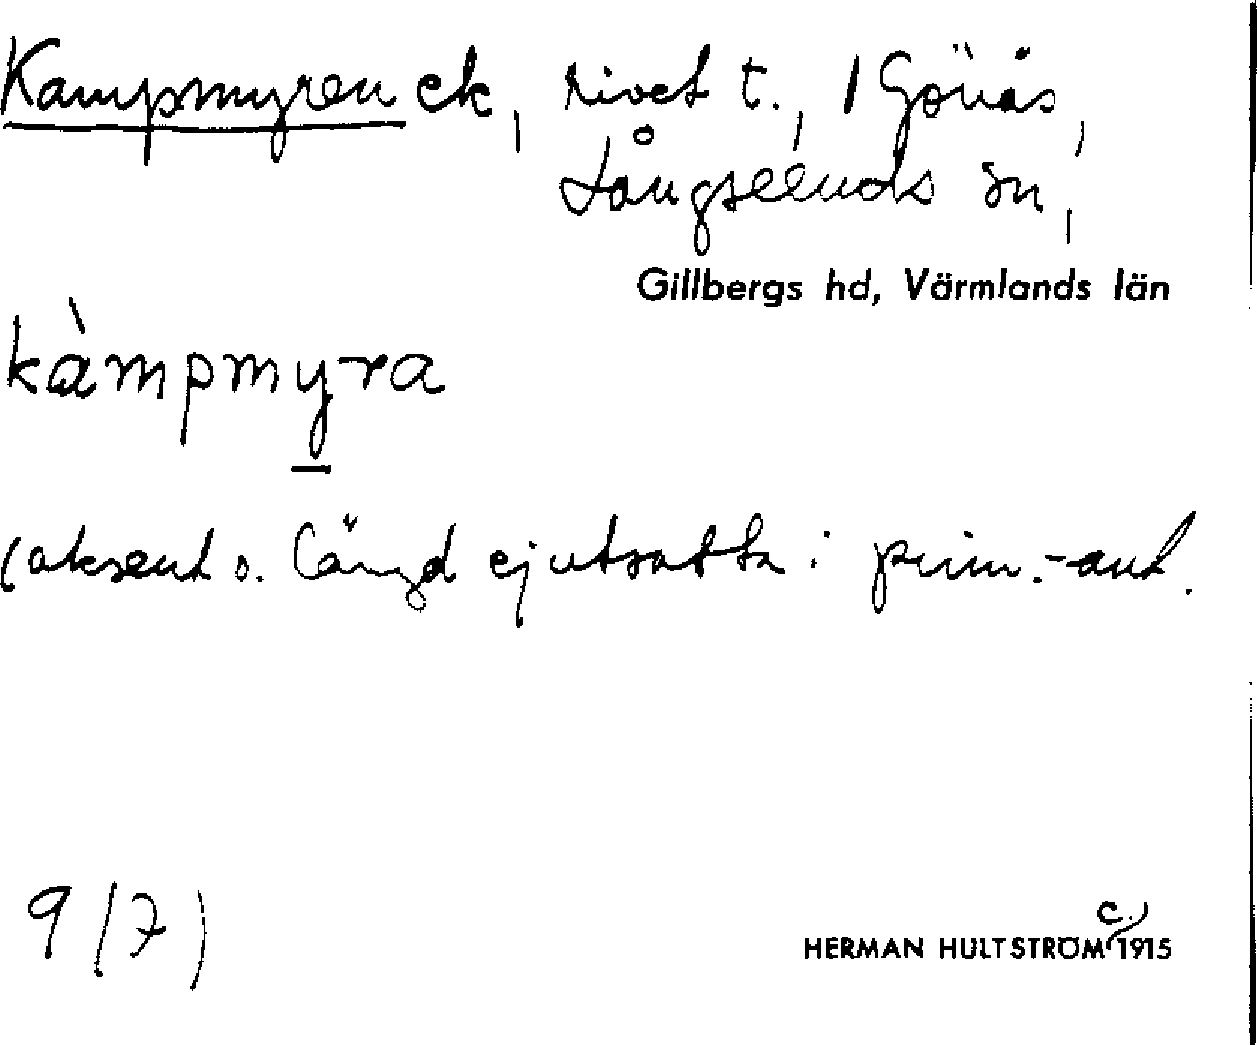 Kampmyren ek, rivet t., 1 Gönäs,
Långseruds sn,
Gillbergs hd, Värmlands län
kàmpmyra
(aksent o. längd ej utsatta i prim.-ant.
9 (7)
c.
HERMAN HULTSTRÖM 1915